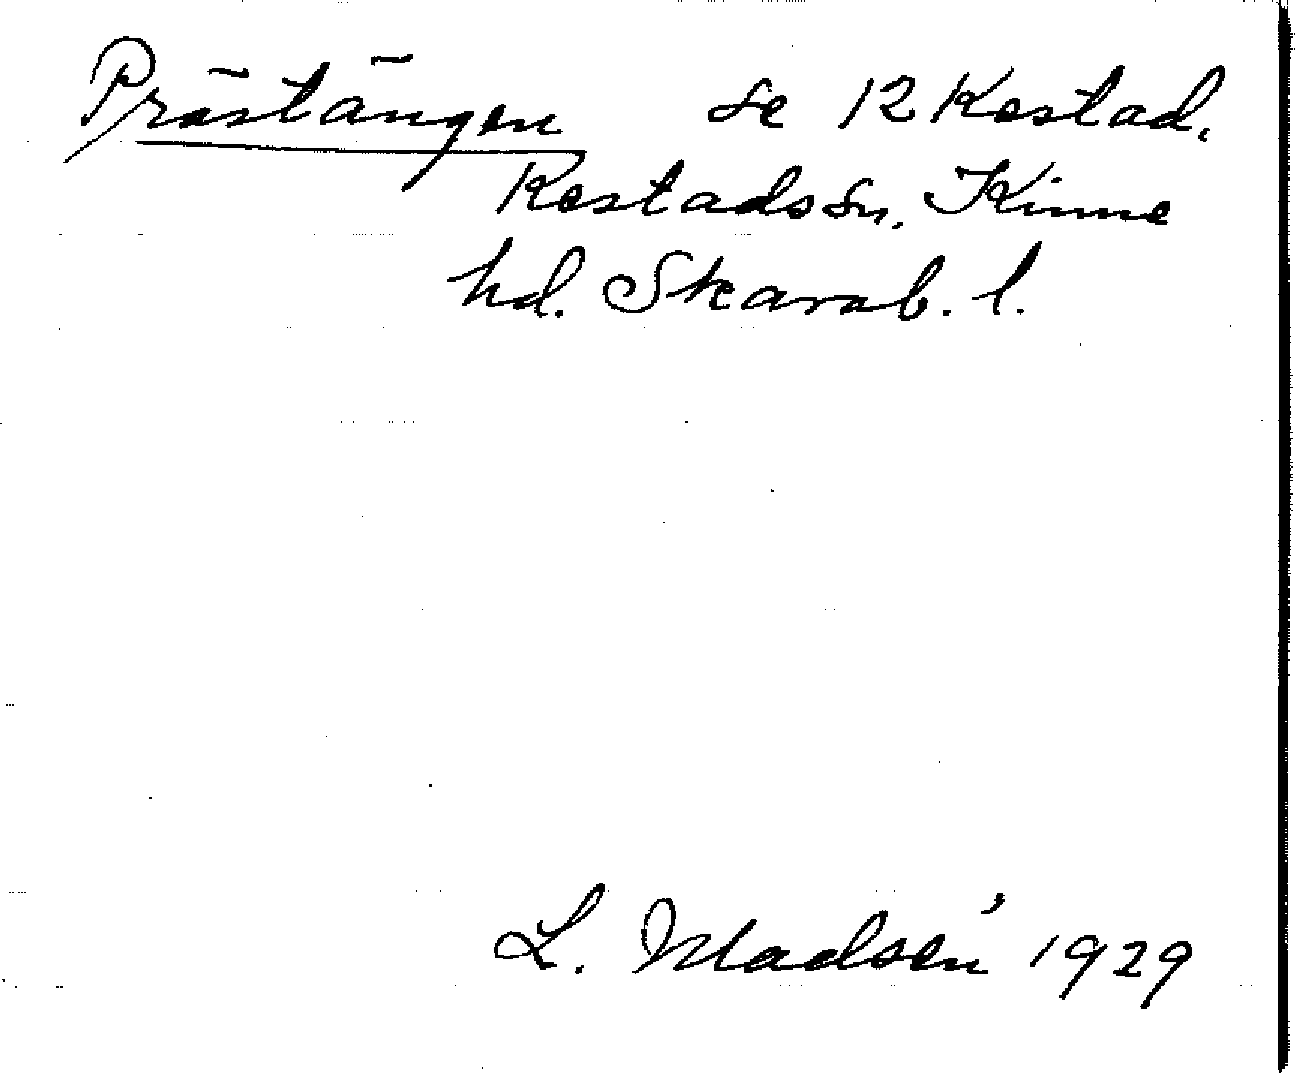 Prästängen se 12 Kestad,
Kestads sn, Kinne
hd. Skarab. l.
L. Madsén 1929